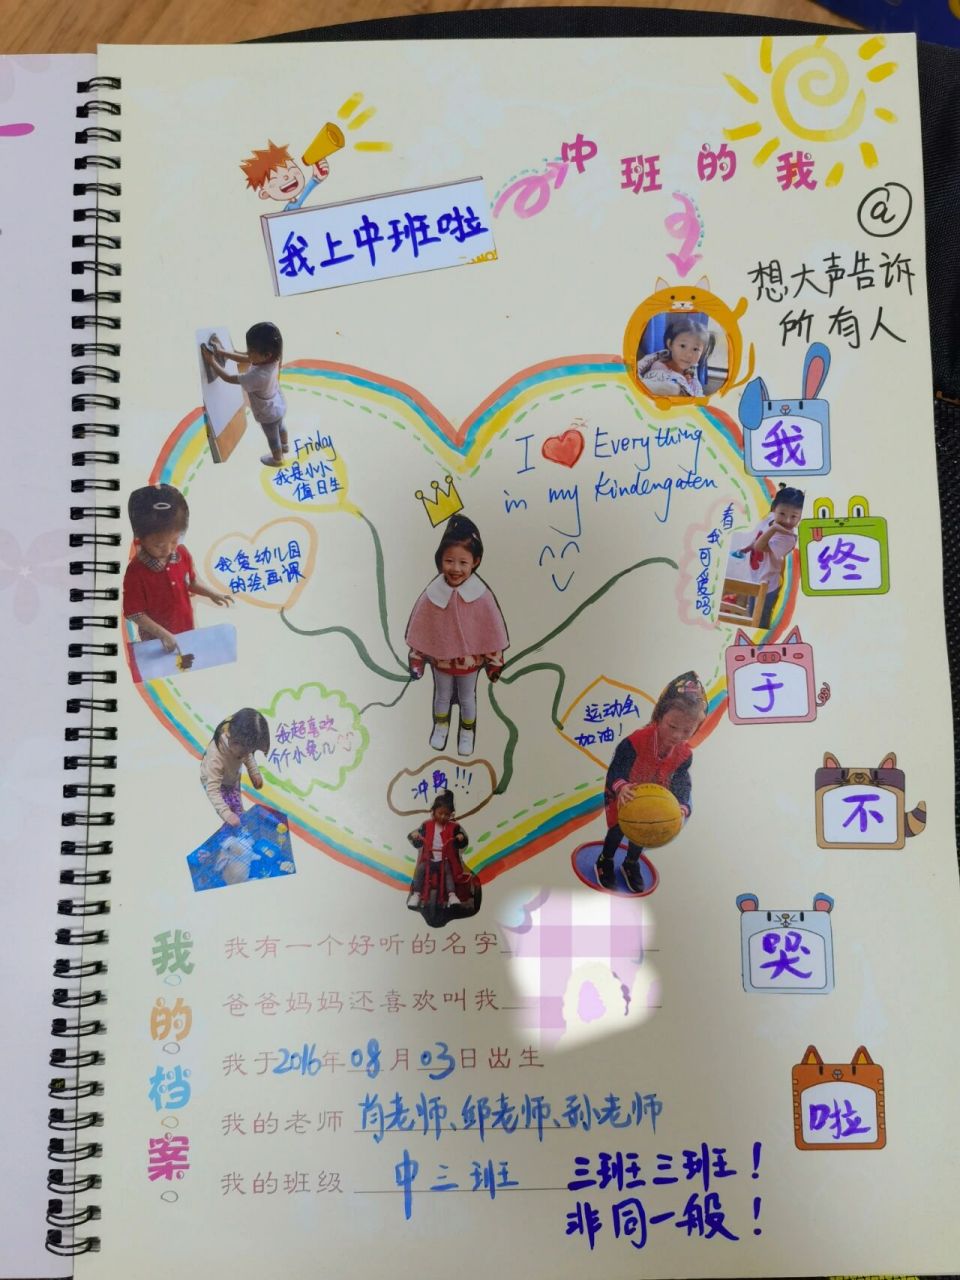 中班的我
我上中班啦
@
想大声告诉
所有人
我
终
于
不
哭
啦
Friday
我是小小
值日生
I ❤ Everything
in my Kindengaten
我爱幼儿园
的绘画课
看我可爱吗
我超喜欢
个小兔儿
运动会
加油!
冲鸭!!!
我的档案
我有一个好听的名字
爸爸妈妈还喜欢叫我
我于2016年08月03日出生
我的老师 肖老师、邱老师、孙老师
我的班级 中三班
三班三班!
非同一般!